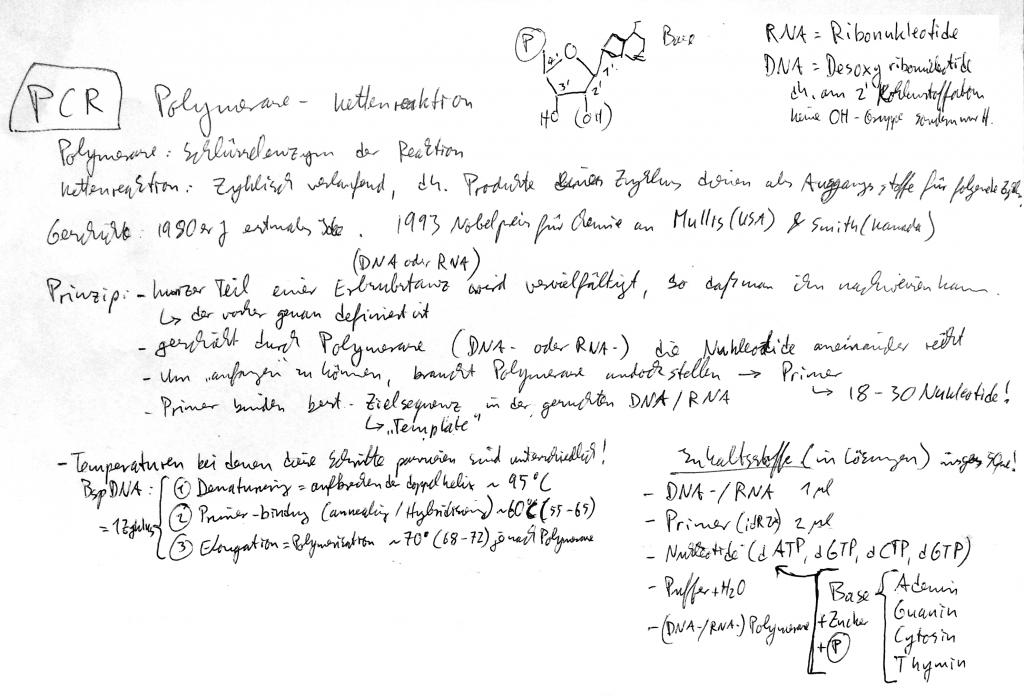 P O Base
4' 1' 3' 2'
HO (OH)
RNA = Ribonukleotide
DNA = Desoxyribonukleotide
d.h. am 2' Kohlenstoffatom
keine OH-Gruppe sondern nur H.
PCR Polymerase-kettenreaktion
Polymerase: Schlüsselenzym der Reaktion
kettenreaktion: Zyklisch verlaufend, d.h. Produkte eines Zyklus dienen als Ausgangsstoffe für folgende
Geschichte: 1980er J erstmals. 1993 Nobelpreis für Chemie an Mullis (USA) & Smith (Kanada)
(DNA oder RNA)
Prinzip: - kurzer Teil einer Erbsubstanz wird vervielfältigt, so daß man ihn nachweisen kann.
↳ der vorher genau definiert ist
- geschieht durch Polymerase (DNA- oder RNA-) die Nukleotide aneinander reiht
- Um "anfangen" zu können, braucht Polymerase andockstellen → Primer
↳ 18-30 Nukleotide!
- Primer binden best. Zielsequenz in der gesuchten DNA/RNA
↳ "Template"
- Temperaturen bei denen diese Schritte passieren sind unterschiedlich!
Bsp DNA: ① Denaturierung = aufbrechen der doppelhelix ~ 95°C
= 1 Zyklus ② Primer-bindung (annealing/Hybridisierung) ~60°C (55-65)
③ Elongation = Polymerisation ~70° (68-72) je nach Polymerase
Inhaltsstoffe (in Lösungen) insges. 50µl!
- DNA-/RNA 1µl
- Primer 2µl
- Nukleotide (dATP, dGTP, dCTP, dGTP)
- Puffer + H2O
- (DNA-/RNA-) Polymerase
Base
+ Zucker
+ P
Adenin
Guanin
Cytosin
Thymin